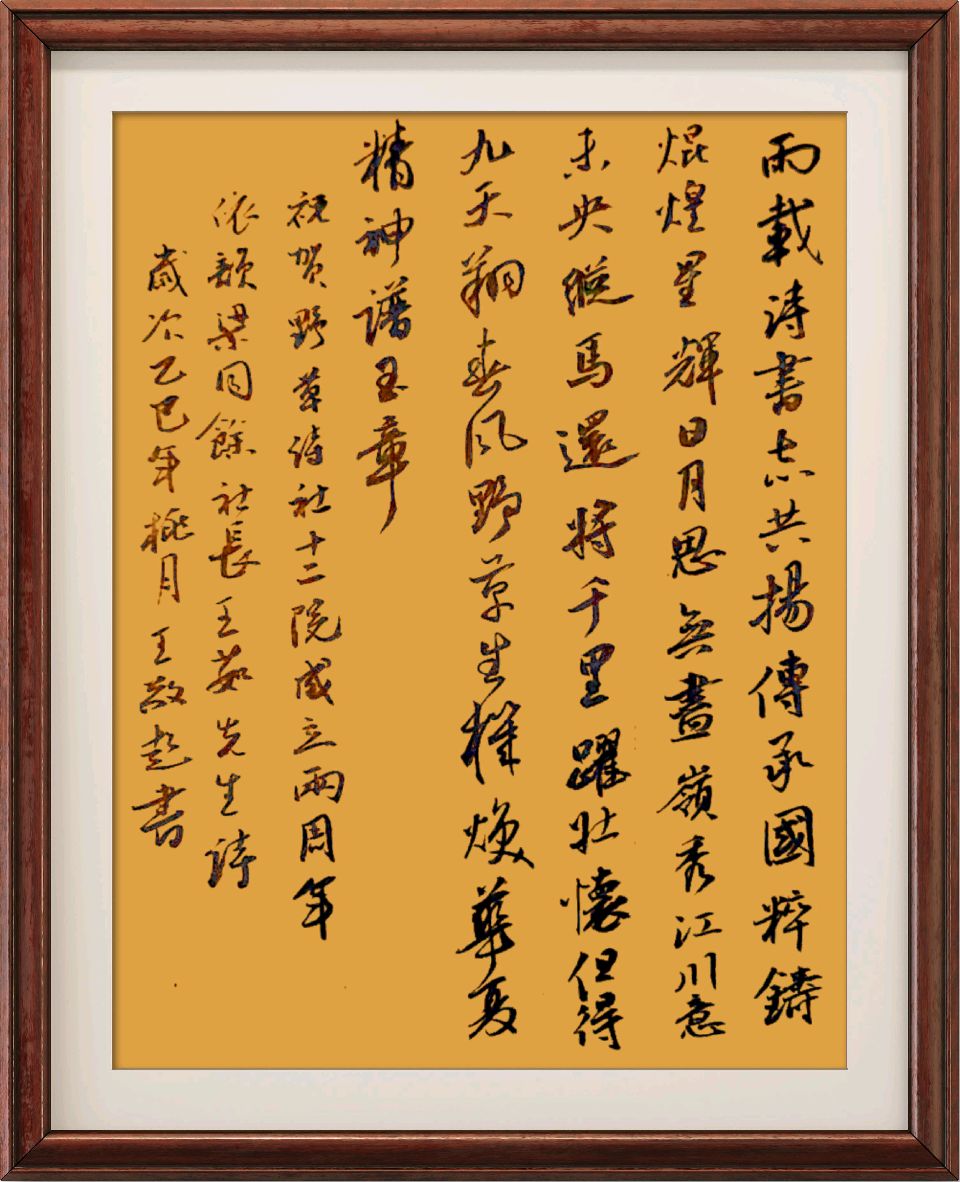 兩載诗書志共揚傳承國粹鑄
焜煌星輝日月思無盡嶺秀江川意
未央縱馬還将千里躍壯懷但得
九天翔春风野草生機焕華夏
精神谱玉章
祝贺野草诗社十二院成立兩周年
依韻梁同餘社長王茹先生詩
歲次乙巳年桃月王敬起書